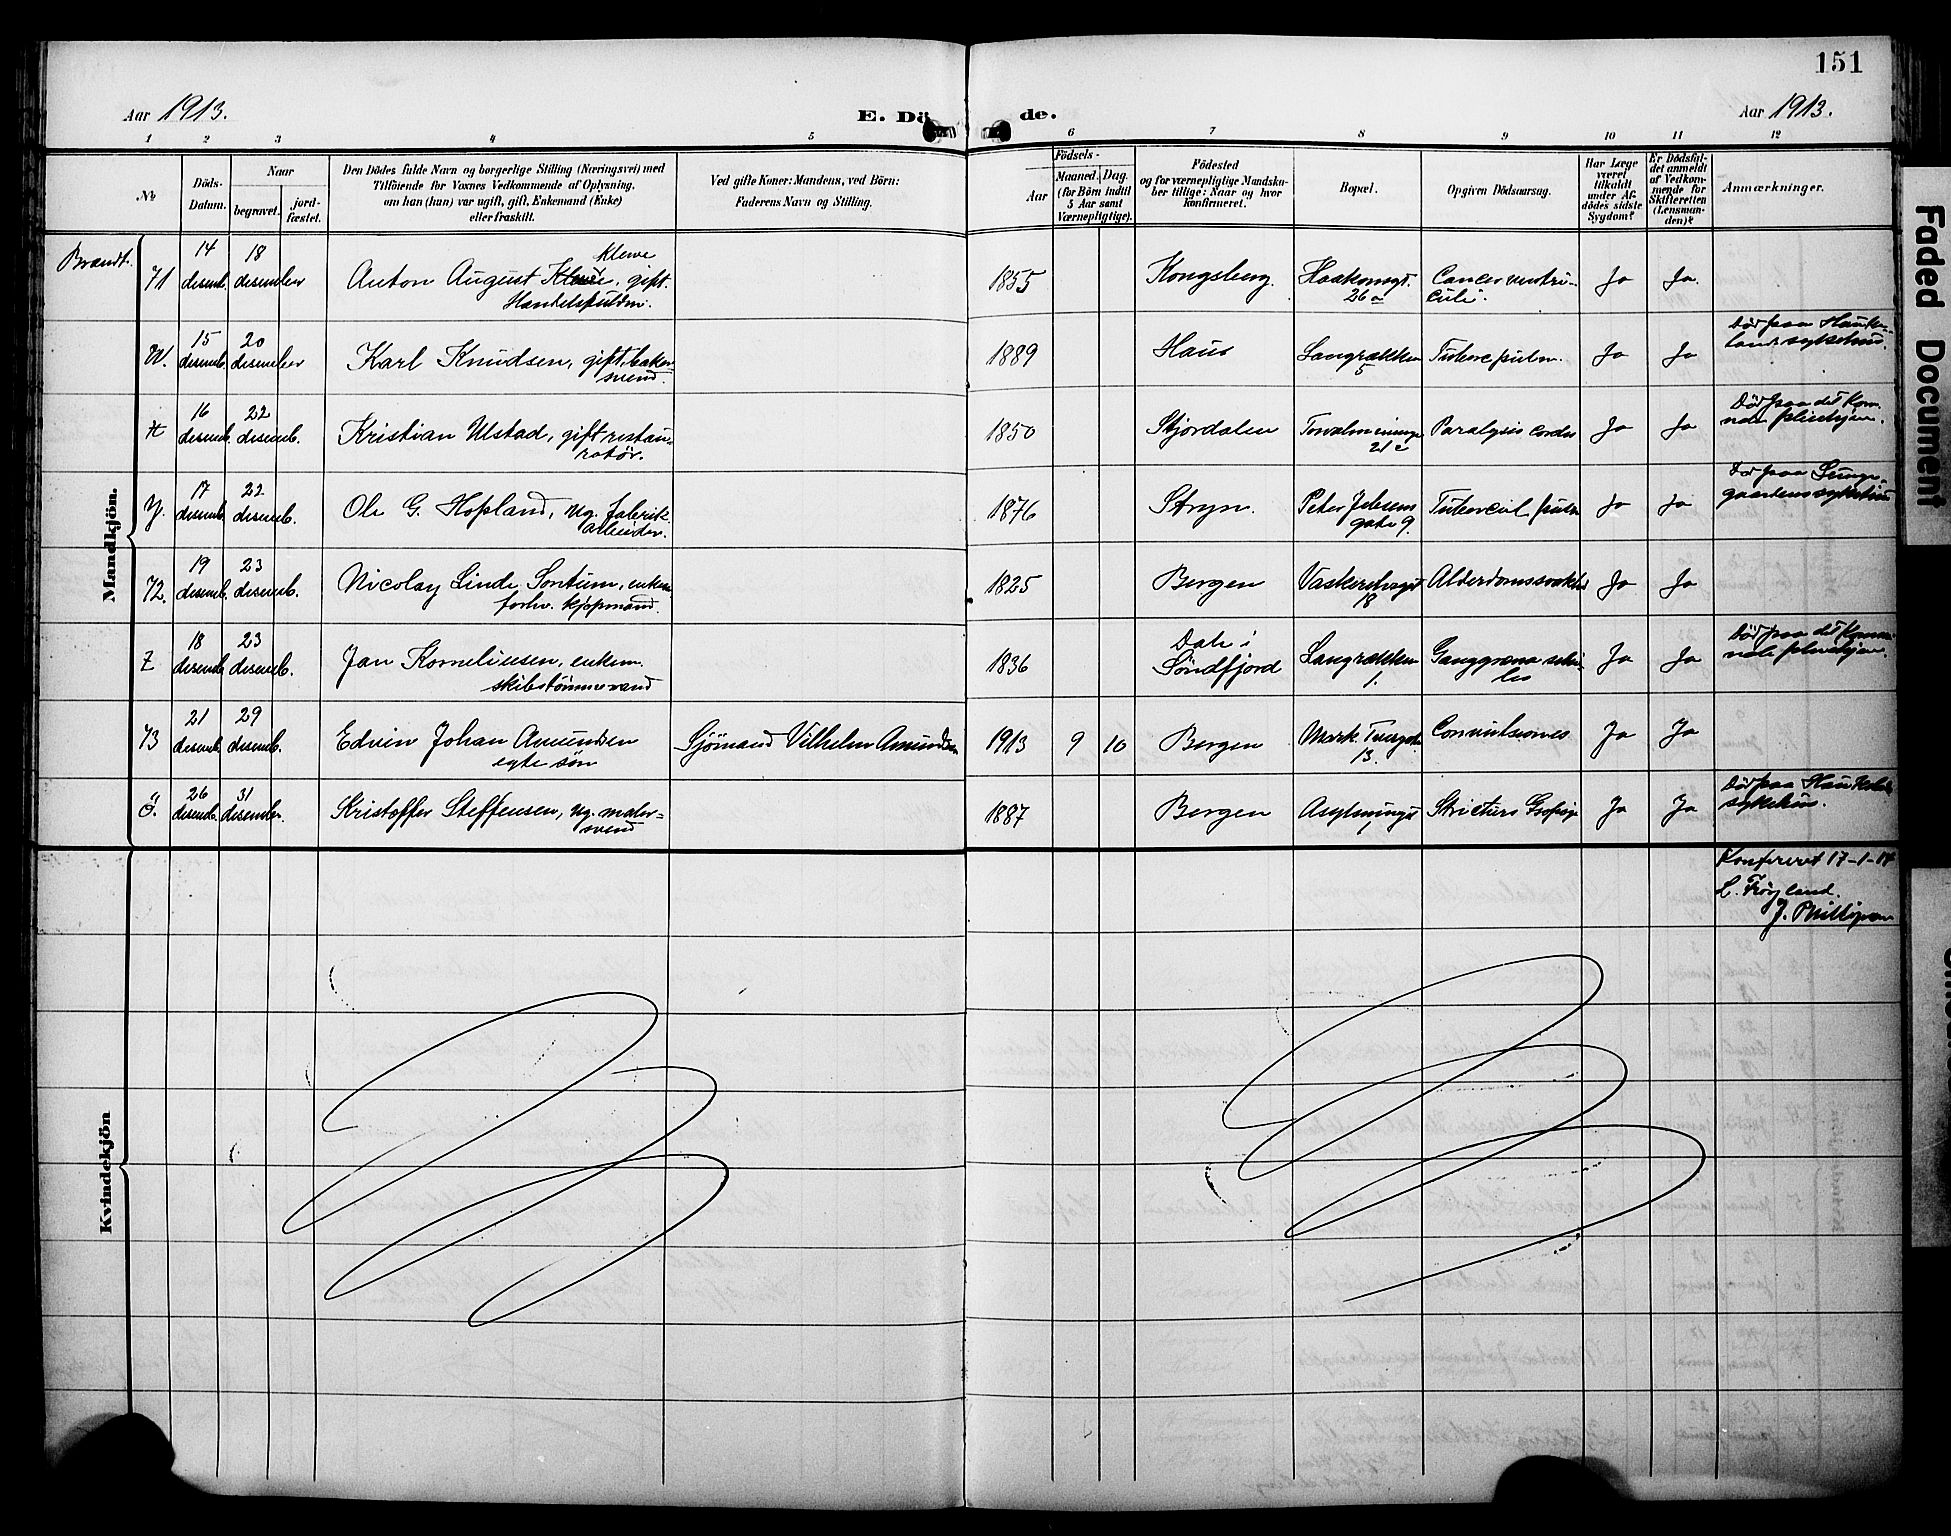 151
Aar 1913.
E. Dö de.
Aar 1913.
1 2 3 4 5 6 7 8 9 10 11 12
No
Döds-
Datum.
Naar
begravet.
jord-
fæstet.
Den Dödes fulde Navn og borgerlige Stilling (Næringsvei) med
Tilföiende for Voxnes Vedkommende af Oplysning,
om han (hun) var ugift, gift, Enkemand (Enke)
eller fraskilt.
Ved gifte Koner: Mandens, ved Börn:
Faderens Navn og Stilling.
Födsels-
Aar
Maaned. Dag.
(for Börn indtil
5 Aar samt
Værnepligtige).
Födested
og for værnepligtige Mandska-
ber tillige: Naar og hvor
konfirmeret.
Bopæl.
Opgiven Dödsaarsag.
Har Læge
været
tilkaldt
under Af-
dödes sidste
Sygdom?
Er Dödsfal-
det anmeldt
af Vedkom-
mende for
Skifteretten
(Lensman-
den)?
Anmærkninger.
Mandkjön.
Brandt.
71
14
desemb.
18
desember
Anton August Klewe, gift.
Klewe
1855
Kongsberg.
Haakonsgt.
26a
Cancer ventri-
culi.
Ja
Ja.
W.
15
desemb.
20
desember
Karl Knudsen, gift, baker-
svend.
1889
Haus
Langrækken
5
Tuberc pulm.
Ja
Ja
Død paa Hauke-
land sykehus.
16
desemb.
22
desemb.
Kristian Ulstad, gift restau-
ratør.
1850
Stjordalen
21c
Paralysis cordis
Ja
Ja
Død paa det Kom.
Y.
17
desemb.
22
desemb.
Ole G. Hopland, ug. fabrik-
arbeider.
1876
Stryn.
Peter Jebsens
gate 9.
Tubercul pulm
Ja
Ja
Død paa Lungе-
gaardens sykehus
72.
19
desemb.
23
desemb.
Nicolay Linde Sontum, enkem
forhv. kjøpmand.
1825
Bergen
18
Alderdomssvakhed
Ja
Ja
Z
18
desemb.
23
desemb.
Jan Korneliusen, enkem.
skibstømmermand
1836
Dale i
Søndfjord
Langrækken
1.
Ganggræna seni-
les
Ja
Ja
Død paa det Kommu-
73
21
desemb.
29
desemb.
Edvin Johan Amundsen
egte søn
Sjömand Vilhelm Amundsen
1913
9
10
Bergen
13.
Convulsiones
Ja
Ja
Ö.
26
desemb.
31
desember.
Kristoffer Steffensen, ug. maler-
svend
1887
Bergen
1
Ja
Ja
Død paa Haukeland
sykehus.
Kvindekjön
Konfereret 17-1-14
L. Frøyland.
J. Phillipsen
Faded Document